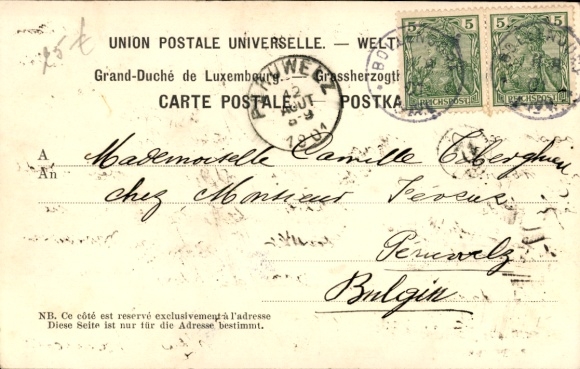 25 €
5 5 5
UNION POSTALE UNIVERSELLE. — WEL
Grand-Duché de Luxembourg. — Grossherzogth
CARTE POSTALE. POSTKA
REICHSPOST REICHSPOST
PERUWELZ
12
AOUT
8-9
1901
A Mademoiselle Camille
An
chez Monsieur
Péruwelz
Belgien
NB. Ce côté est reservé exclusivement à l'adresse
Diese Seite ist nur für die Adresse bestimmt.